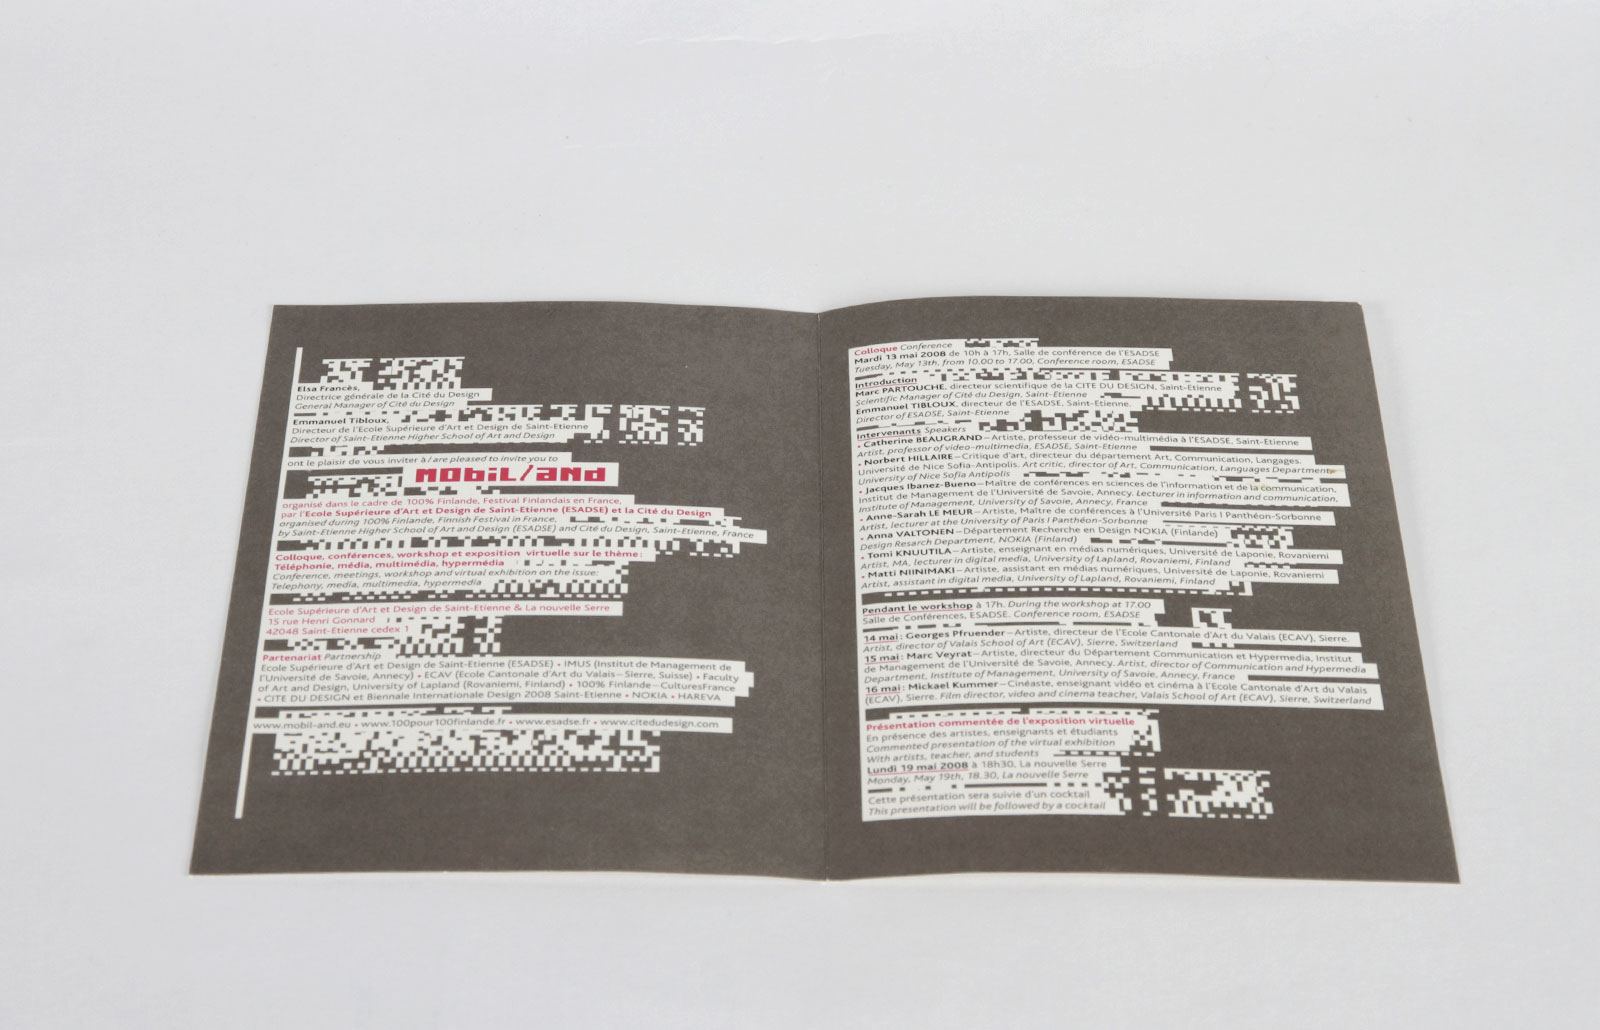 Elsa Francès,
Directrice générale de la Cité du Design
General Manager of Cité du Design
Emmanuel Tibloux,
Directeur de l'Ecole Supérieure d'Art et Design de Saint-Etienne
Director of Saint-Etienne Higher School of Art and Design
ont le plaisir de vous inviter à / are pleased to invite you to
mobil/and
organisé dans le cadre de 100% Finlande, Festival Finlandais en France,
par l'Ecole Supérieure d'Art et Design de Saint-Etienne (ESADSE) et la Cité du Design
organised during 100% Finlande, Finnish Festival in France,
by Saint-Etienne Higher School of Art and Design (ESADSE) and Cité du Design, Saint-Etienne, France
Colloque, conférences, workshop et exposition virtuelle sur le thème :
Téléphonie, média, multimédia, hypermédia
Conference, meetings, workshop and virtual exhibition on the issue:
Telephony, media, multimedia, hypermedia
Ecole Supérieure d'Art et Design de Saint-Etienne & La nouvelle Serre
15 rue Henri Gonnard
42048 Saint-Etienne cedex 1
Partenariat Partnership
Ecole Supérieure d'Art et Design de Saint-Etienne (ESADSE) • IMUS (Institut de Management de
l'Université de Savoie, Annecy) • ECAV (Ecole Cantonale d'Art du Valais – Sierre, Suisse) • Faculty
of Art and Design, University of Lapland (Rovaniemi, Finland) • 100% Finlande – CulturesFrance
• CITE DU DESIGN et Biennale Internationale Design 2008 Saint-Etienne • NOKIA • HAREVA
www.mobil-and.eu • www.100pour100finlande.fr • www.esadse.fr • www.citedudesign.com
Colloque Conference
Mardi 13 mai 2008 de 10h à 17h, Salle de conférence de l'ESADSE
Tuesday, May 13th, from 10.00 to 17.00, Conference room, ESADSE
Introduction
Marc PARTOUCHE, directeur scientifique de la CITE DU DESIGN, Saint-Etienne
Scientific Manager of Cité du Design, Saint-Etienne
Emmanuel TIBLOUX, directeur de l'ESADSE, Saint-Etienne.
Director of ESADSE, Saint-Etienne
Intervenants Speakers
• Catherine BEAUGRAND – Artiste, professeur de vidéo-multimédia à l'ESADSE, Saint-Etienne
Artist, professor of video-multimedia, ESADSE, Saint-Etienne
• Norbert HILLAIRE – Critique d'art, directeur du département Art, Communication, Langages.
Université de Nice Sofia-Antipolis. Art critic, director of Art, Communication, Languages Department,
University of Nice Sofia Antipolis
• Jacques Ibanez-Bueno – Maître de conférences en sciences de l'information et de la communication,
Institut de Management de l'Université de Savoie, Annecy. Lecturer in information and communication,
Institute of Management, University of Savoie, Annecy, France
• Anne-Sarah LE MEUR – Artiste, Maître de conférences à l'Université Paris I Panthéon-Sorbonne
Artist, lecturer at the University of Paris I Panthéon-Sorbonne
• Anna VALTONEN – Département Recherche en Design NOKIA (Finlande)
Design Resarch Department, NOKIA (Finland)
• Tomi KNUUTILA – Artiste, enseignant en médias numériques, Université de Laponie, Rovaniemi
Artist, MA, lecturer in digital media, University of Lapland, Rovaniemi, Finland
• Matti NIINIMAKI – Artiste, assistant en médias numériques, Université de Laponie, Rovaniemi
Artist, assistant in digital media, University of Lapland, Rovaniemi, Finland
Pendant le workshop à 17h. During the workshop at 17.00
Salle de Conférences, ESADSE. Conference room, ESADSE
14 mai : Georges Pfruender – Artiste, directeur de l'Ecole Cantonale d'Art du Valais (ECAV), Sierre.
Artist, director of Valais School of Art (ECAV), Sierre, Switzerland
15 mai : Marc Veyrat – Artiste, directeur du Département Communication et Hypermedia, Institut
de Management de l'Université de Savoie, Annecy. Artist, director of Communication and Hypermedia
Department, Institute of Management, University of Savoie, Annecy, France
16 mai : Mickael Kummer – Cinéaste, enseignant vidéo et cinéma à l'Ecole Cantonale d'Art du Valais
(ECAV), Sierre. Film director, video and cinema teacher, Valais School of Art (ECAV), Sierre, Switzerland
Présentation commentée de l'exposition virtuelle
En présence des artistes, enseignants et étudiants
Commented presentation of the virtual exhibition
With artists, teacher, and students
Lundi 19 mai 2008 à 18h30, La nouvelle Serre
Monday, May 19th, 18.30, La nouvelle Serre
Cette présentation sera suivie d'un cocktail
This presentation will be followed by a cocktail